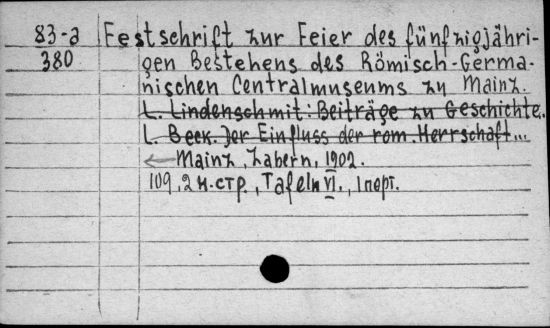 83-а Festschrift zur Feier des fünfzigjähri-
380 gen Bestehens des Römisch-Germa-
nischen Centralmuseums zu Mainz.
L. Lindenschmit: Beiträge zu Geschichte.
L. Beck. Der Einfluss der röm. Herrschaft...
Mainz, Zabern, 1902.
109, 2 н. стр., Tafeln VI., 1 порт.